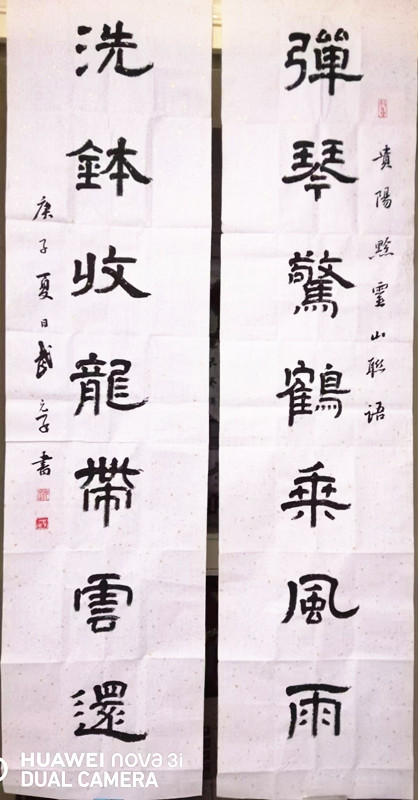 貴陽黔靈山聯語
彈琴驚鶴乘風雨
洗鉢收龍帶雲還
庚子夏日武元子書
HUAWEI nova 3i
DUAL CAMERA